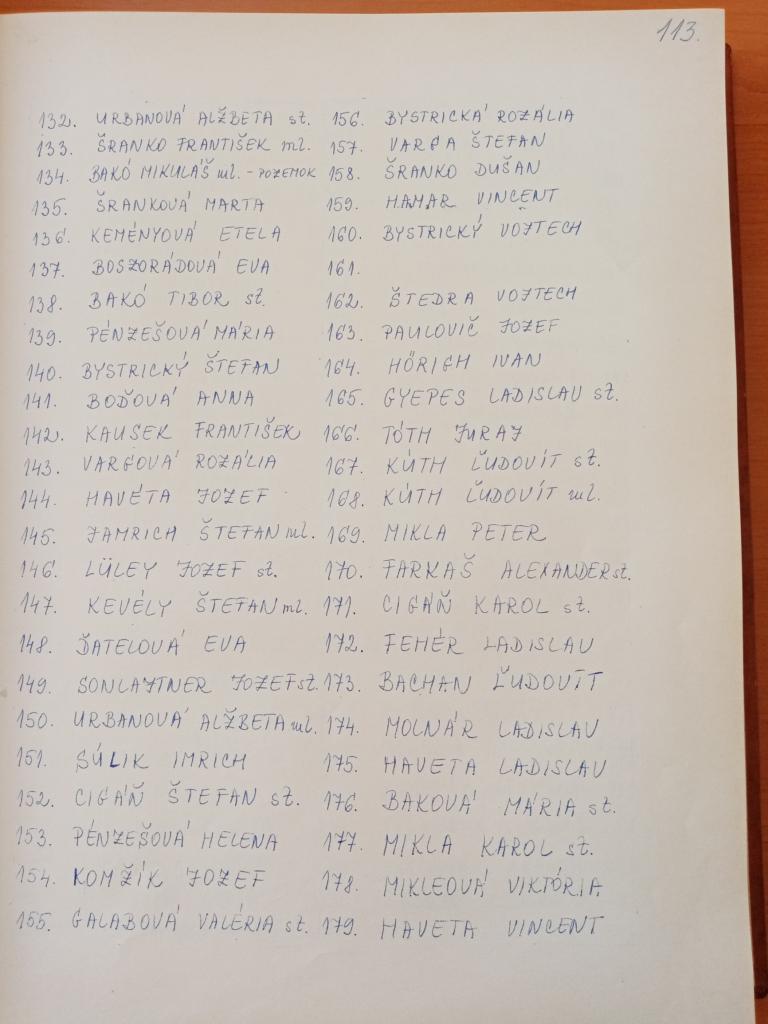 113.
132. URBANOVÁ ALŽBETA st.
133. ŠRANKO FRANTIŠEK ml.
134. BAKÓ MIKULÁŠ ml. - POZEMOK
135. ŠRANKOVÁ MARTA
136. KEMÉNYOVÁ ETELA
137. BOSZORÁDOVÁ EVA
138. BAKÓ TIBOR st.
139. PÉNZEŠOVÁ MÁRIA
140. BYSTRICKÝ ŠTEFAN
141. BOĎOVÁ ANNA
142. KAUSEK FRANTIŠEK
143. VARGOVÁ ROZÁLIA
144. HAVETA JOZEF
145. JAMRICH ŠTEFAN ml.
146. LÜLEY JOZEF st.
147. KEVÉLY ŠTEFAN ml.
148. ĎATELOVÁ EVA
149. SONLAJTNER JOZEF st.
150. URBANOVÁ ALŽBETA ml.
151. SÚLIK IMRICH
152. CIGÁŇ ŠTEFAN st.
153. PÉNZEŠOVÁ HELENA
154. KOMŽÍK JOZEF
155. GALABOVÁ VALÉRIA st.
156. BYSTRICKÁ ROZÁLIA
157. VARGA ŠTEFAN
158. ŠRANKO DUŠAN
159. HAMAR VINCENT
160. BYSTRICKÝ VOJTECH
161.
162. ŠTEDRA VOJTECH
163. PAULOVIČ JOZEF
164. HÖRIGH IVAN
165. GYEPES LADISLAV st.
166. TÓTH JURAJ
167. KÚTH ĽUDOVÍT st.
168. KÚTH ĽUDOVÍT ml.
169. MIKLA PETER
170. FARKAŠ ALEXANDER st.
171. CIGÁŇ KAROL st.
172. FEHÉR LADISLAV
173. BACHAN ĽUDOVÍT
174. MOLNÁR LADISLAV
175. HAVETA LADISLAV
176. BAKOVÁ MÁRIA st.
177. MIKLA KAROL st.
178. MIKLEOVÁ VIKTÓRIA
179. HAVETA VINCENT